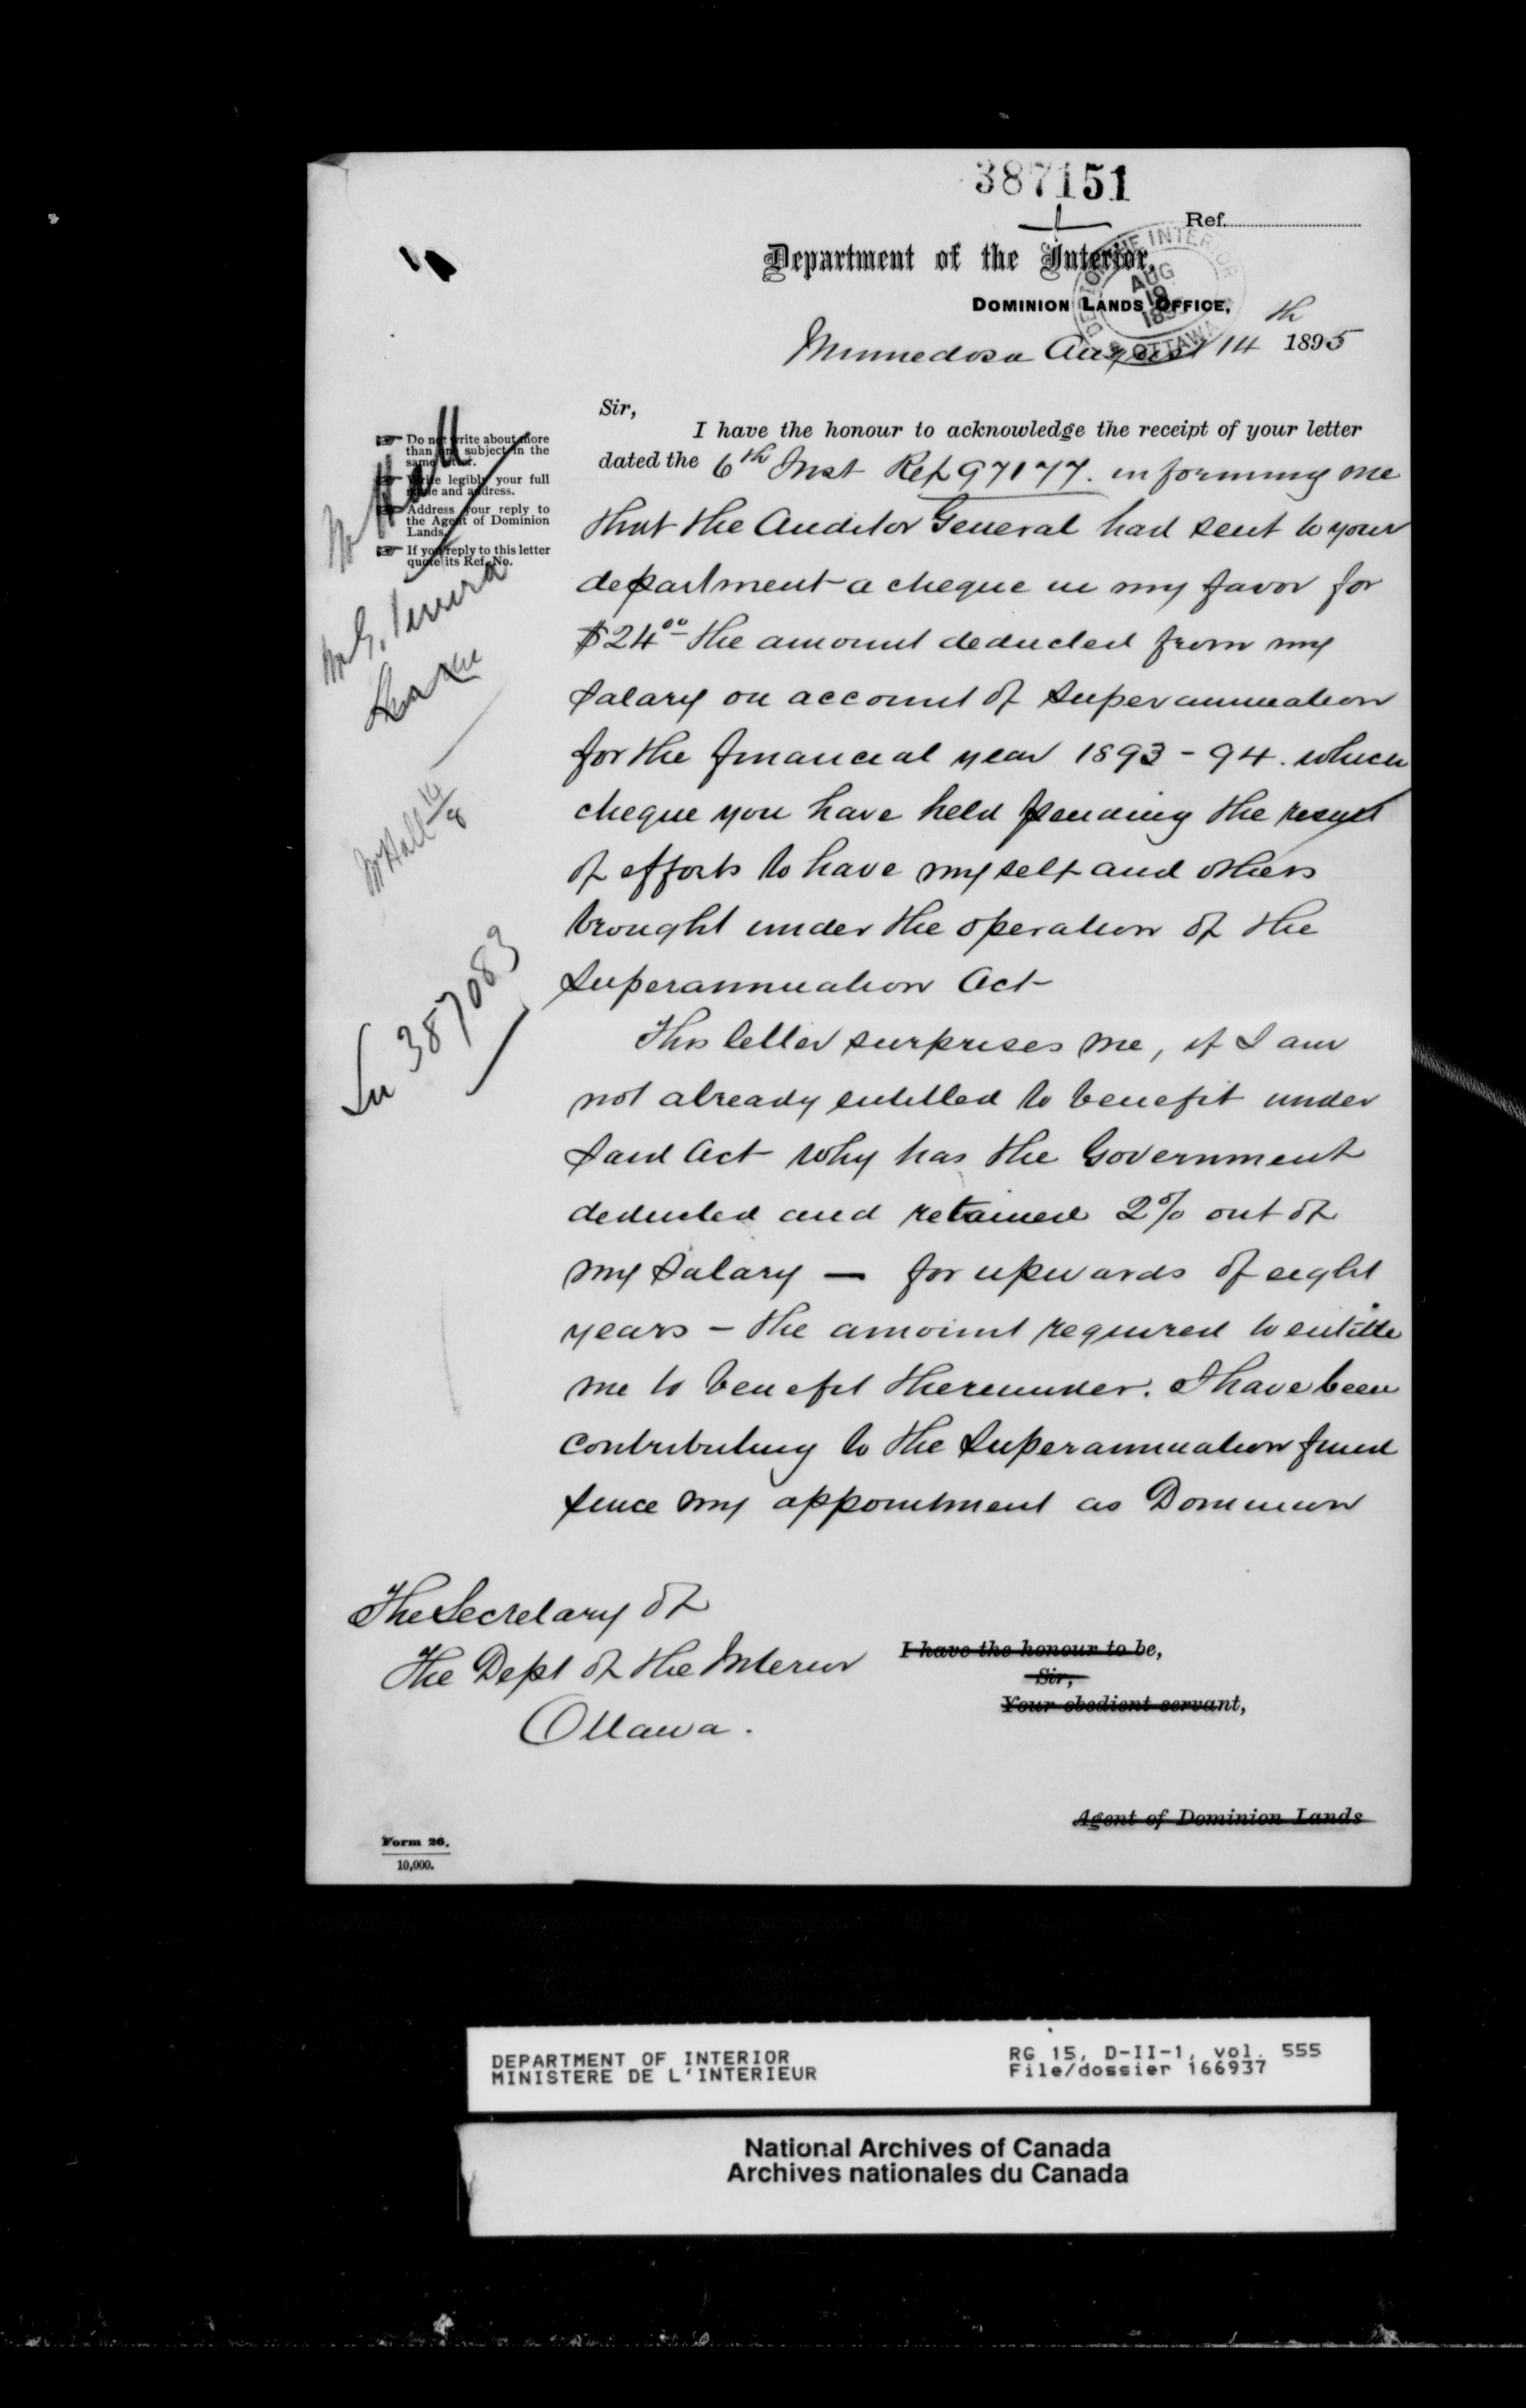 387151
Ref.
Department of the Interior,
DOMINION LANDS OFFICE,
Minnedosa August 14th 1895
AUG
19
OTTAWA
Sir,
I have the honour to acknowledge the receipt of your letter
dated the 6th Inst Ref 97177. informing me
that the Auditor General had sent to your
department a cheque in my favor for
$24.00 the amount deducted from my
salary on account of superannuation
for the financial year 1893-94. which
cheque you have held pending the result
of efforts to have myself and others
brought under the operation of the
Superannuation Act
This letter surprises me, if I am
not already entitled to benefit under
said Act why has the Government
deducted and retained 2% out of
my salary — for upwards of eight
years – the amount required to entitle
me to benefit thereunder. I have been
contributing to the Superannuation fund
since my appointment as Dominion
Do not write about more
than one subject in the
same letter.
Write legibly your full
name and address.
Address your reply to
the Agent of Dominion
Lands.
If you reply to this letter
quote its Ref. No.
Mr Hall
Mr G. Pereira
Mr Hall 19/8
In 387083
The Secretary of
The Dept of the Interior
Ottawa.
I have the honour to be,
Sir,
Your obedient servant,
Agent of Dominion Lands
Form 26.
10,000.
DEPARTMENT OF INTERIOR
MINISTERE DE L'INTERIEUR
RG 15, D-II-1, vol. 555
File/dossier 166937
National Archives of Canada
Archives nationales du Canada